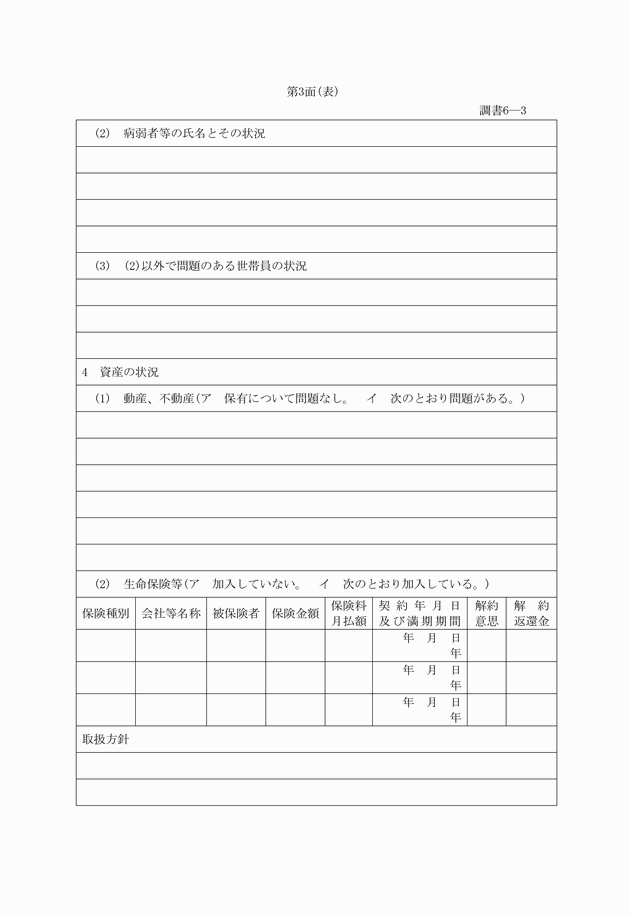 第3面(表)
調書6―3
(2)　病弱者等の氏名とその状況
(3)　(2)以外で問題のある世帯員の状況
4　資産の状況
(1)　動産、不動産(ア　保有について問題なし。　イ　次のとおり問題がある。)
(2)　生命保険等(ア　加入していない。　イ　次のとおり加入している。)
保険種別　会社等名称　被保険者　保険金額　保険料月払額　契約年月日及び満期期間　解約意思　解約返還金
年　月　日
年
年　月　日
年
年　月　日
年
取扱方針